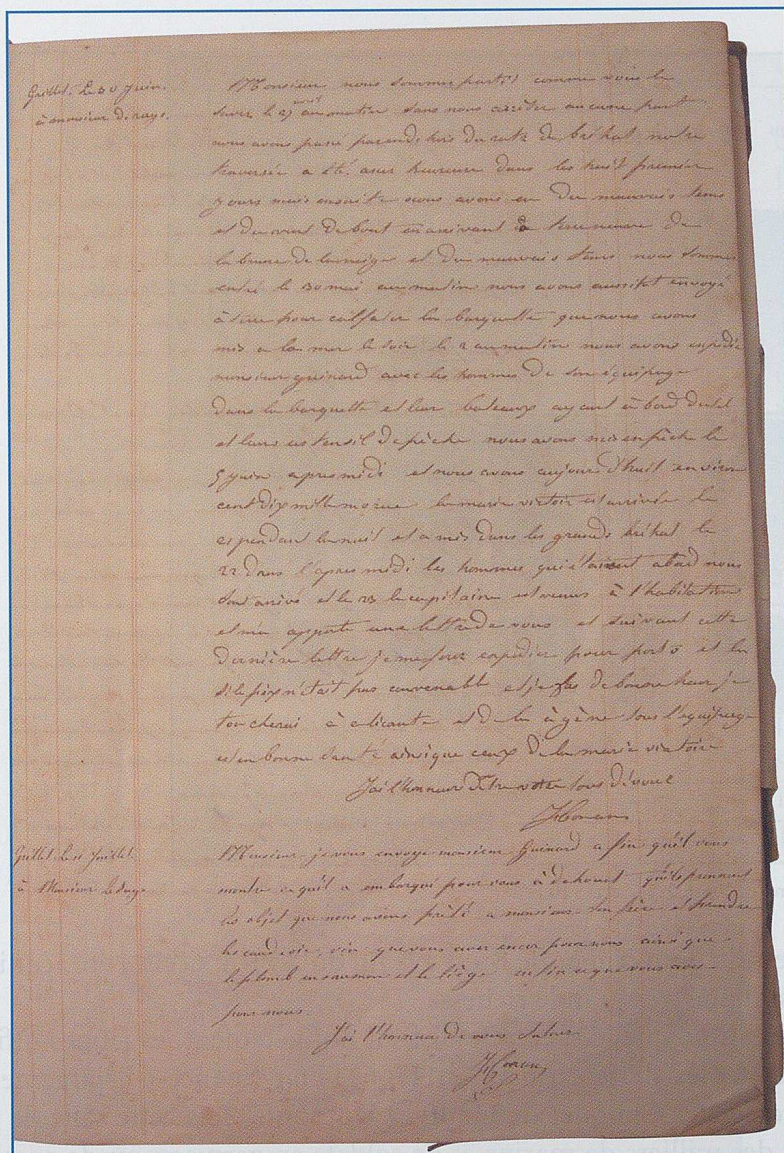 Guillet Le 30 Juin.
à monsieur
Monsieur nous sommes partis comme vous le
savez le 27 avril au matin sans nous arrêter aucune part
nous avons passé par en dehors du de bréhat notre
traversée a été assez heureuse dans les huit premier
jours mais ensuite nous avons eu du mauvais tems
et du vent de bout en arrivant à terre neuve de
la brume de la neige et du mauvais tems nous sommes
entré le 30 mai au matin nous avons aussitot envoyé
à terre pour calfater la barquette que nous avons
mis a la mer le soir le 2 au matin nous avons expédié
monsieur guinard avec les hommes de son équipage
dans la barquette et leur bateaux ayant à bord du sel
et leurs ustensil de pêche nous avons mis en pêche le
5 juin apres midi et nous avons aujourd'huit environ
cent dix mille morue la marie victoir est arrivée le
21 pendant la nuit et a mis dans les grands bréhat le
22 dans l'apres midi les hommes qui étaient abord nous
sont arrivé et le 23 le capitaine est venus à l'habitation
et m'a apporté une lettre de vous et suivant cette
dernière lettre je me ferez expédier pour porto et la
si le prix n'était pas convenable et je fus de bonne heur je
toucherai à alicante et de la à gène tous l'equipage
est en bonne santé ainsi que ceux de la marie victoire
J'ai l'honneur d'être votre tous dévoué
Guillet Le 11 Juillet
à Monsieur
Monsieur je vous envoye monsieur Guinard afin qu'il vous
montre ce qu'il a embarqué pour vous à dahouet qu'ils prennent
les objet que nous avions prêté a monsieur son frère et prendre
vin que vous avez encor pour nous ainsi que
le plomb en saumon et le liège enfin ce que vous avez
pour nous.
J'ai l'honneur de vous saluer